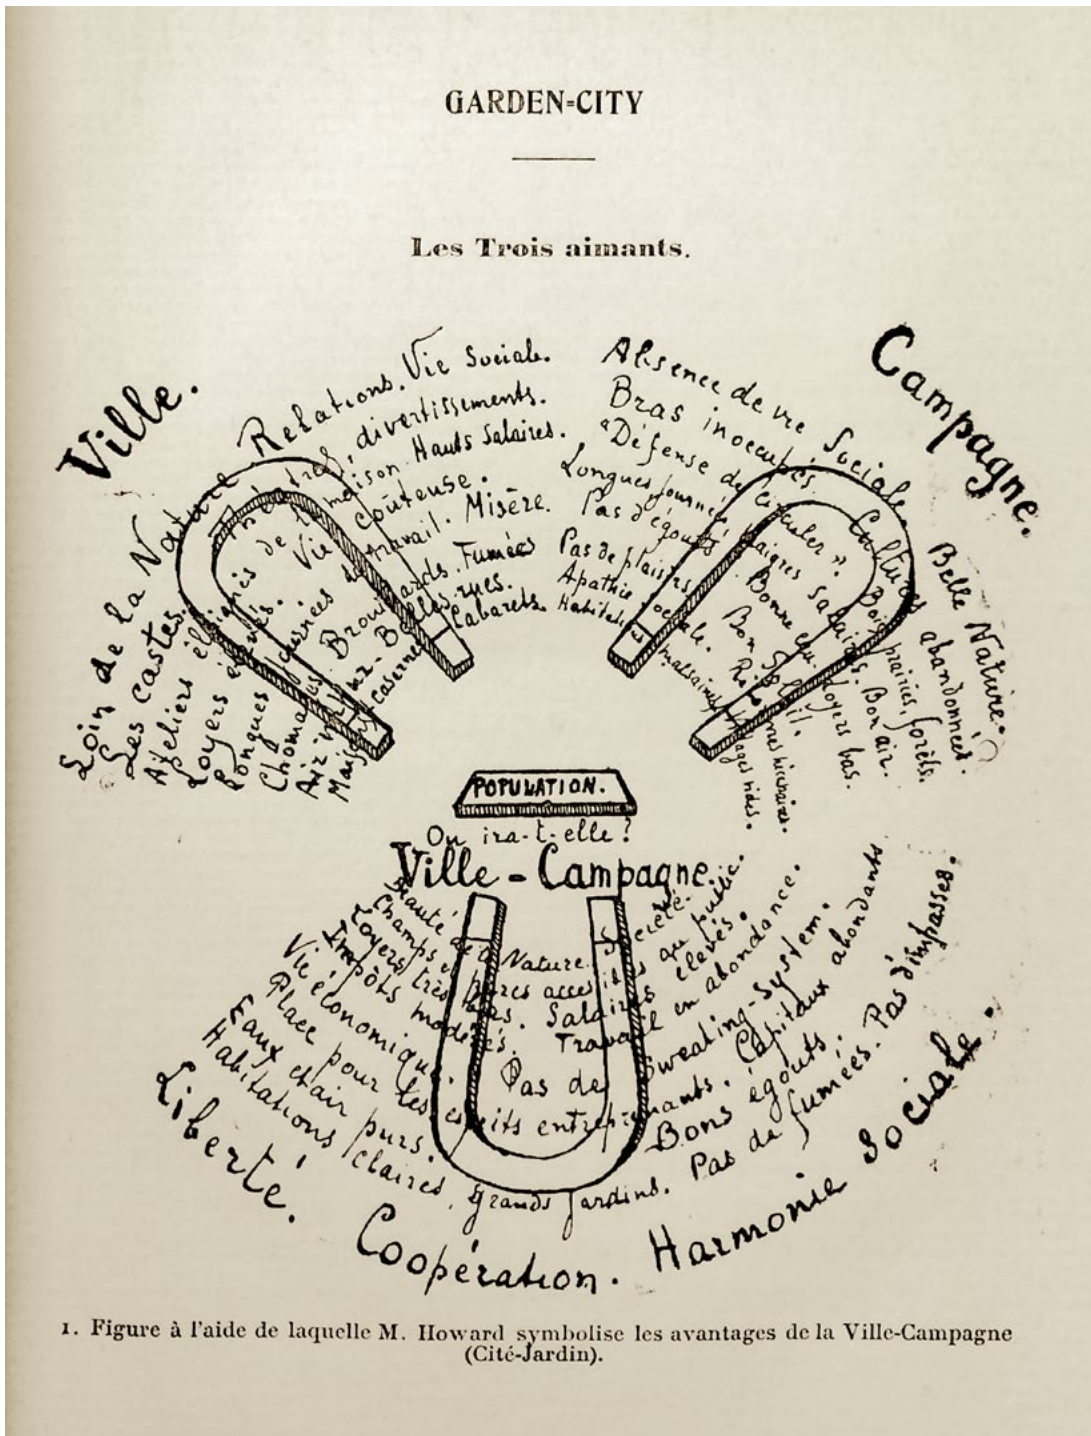 GARDEN=CITY
Les Trois aimants.
Ville.
Loin de la Nature. Relations. Vie Sociale.
Les castes. Théâtres, divertissements.
Ateliers éloignés de la maison. Hauts Salaires.
Loyers élevés. Vie coûteuse.
Longues journées de travail. Misère.
Chomage. Brouillards. Fumées
Air vicieux. Belles rues.
Maisons casernes. Cabarets.
Campagne.
Absence de vie Sociale. Belle Nature.
Bras inoccupés. Cultures abandonnées.
"Défense de circuler". Bois, prairies, forêts.
Longues journées, maigres salaires. Bon air.
Pas d'égouts. Bonne eau. Loyers bas.
Pas de plaisirs. Bon Soleil.
Apathie Sociale.
Habitations malsaines. Villages vides.
POPULATION.
Ou ira-t-elle?
Ville - Campagne.
Beauté de la Nature. Société.
Champs et parcs accessibles au public.
Loyers très bas. Salaires élevés.
Impôts modérés. Travail en abondance.
Vie économique. Pas de Sweating-System.
Place pour les esprits entreprenants. Capitaux abondants
Eaux et air purs. Bons égouts.
Habitations claires, grands jardins. Pas de fumées. Pas d'impasses.
Liberté. Coopération. Harmonie Sociale.
1. Figure à l'aide de laquelle M. Howard symbolise les avantages de la Ville-Campagne
(Cité-Jardin).